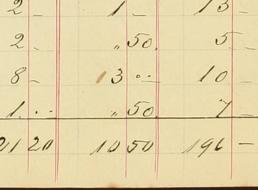 2 1 - 13 -
2. „ 50. 5 -
8 - 13 .. 10 -
1. .. „ 50. 7 -
21 20 10 50 196 -